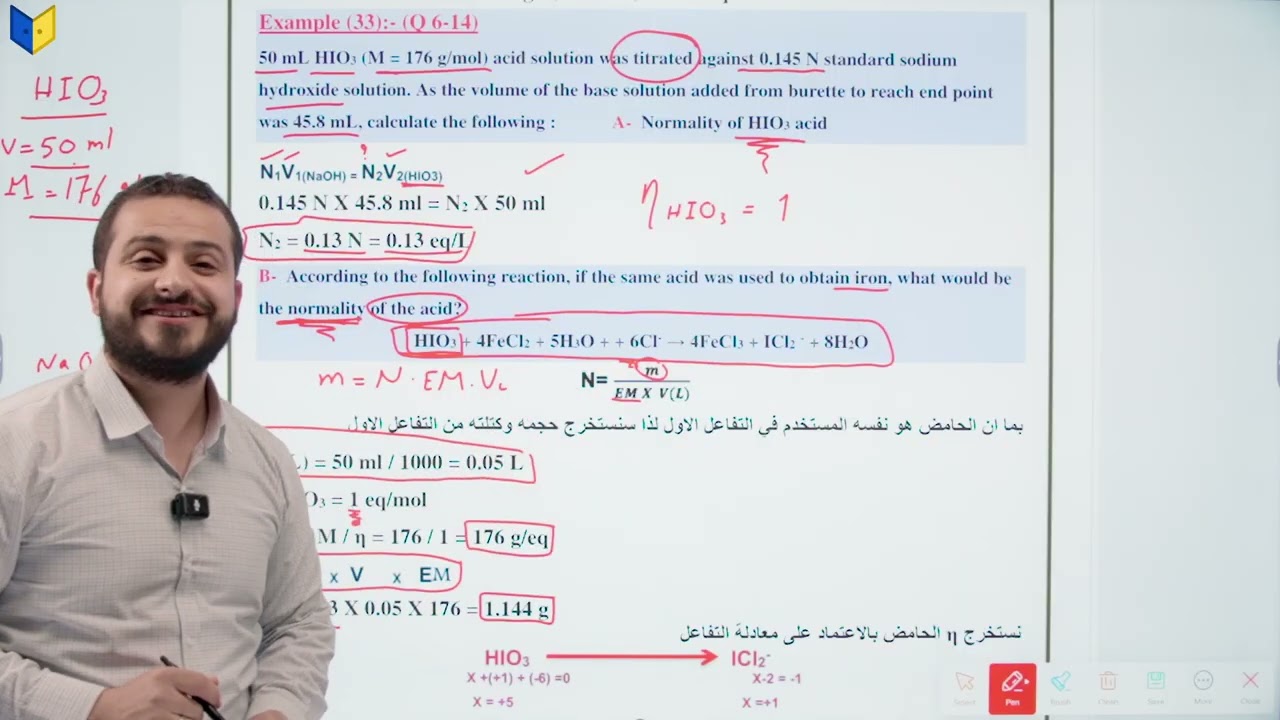 Example (33):- (Q 6-14)
50 mL HIO₃ (M = 176 g/mol) acid solution was titrated against 0.145 N standard sodium
hydroxide solution. As the volume of the base solution added from burette to reach end point
was 45.8 mL, calculate the following : A- Normality of HIO₃ acid
HIO₃
V = 50 ml
M = 176
N₁V₁(NaOH) = N₂V₂(HIO3)
?
0.145 N X 45.8 ml = N₂ X 50 ml
η HIO₃ = 1
N₂ = 0.13 N = 0.13 eq/L
B- According to the following reaction, if the same acid was used to obtain iron, what would be
the normality of the acid?
HIO₃ + 4FeCl₂ + 5H₃O + + 6Cl⁻ → 4FeCl₃ + ICl₂⁻ + 8H₂O
Na
m = N . EM . V
N= m / EM X V(L)
بما ان الحامض هو نفسه المستخدم في التفاعل الاول لذا سنستخرج حجمه وكتلته من التفاعل الاول
) = 50 ml / 1000 = 0.05 L
O₃ = 1 eq/mol
M / η = 176 / 1 = 176 g/eq
x V x EM
3 X 0.05 X 176 = 1.144 g
نستخرج η الحامض بالاعتماد على معادلة التفاعل
HIO₃ → ICl₂⁻
X +(+1) + (-6) =0 X-2 = -1
X = +5 X =+1
Select Pen Clean Save More Close